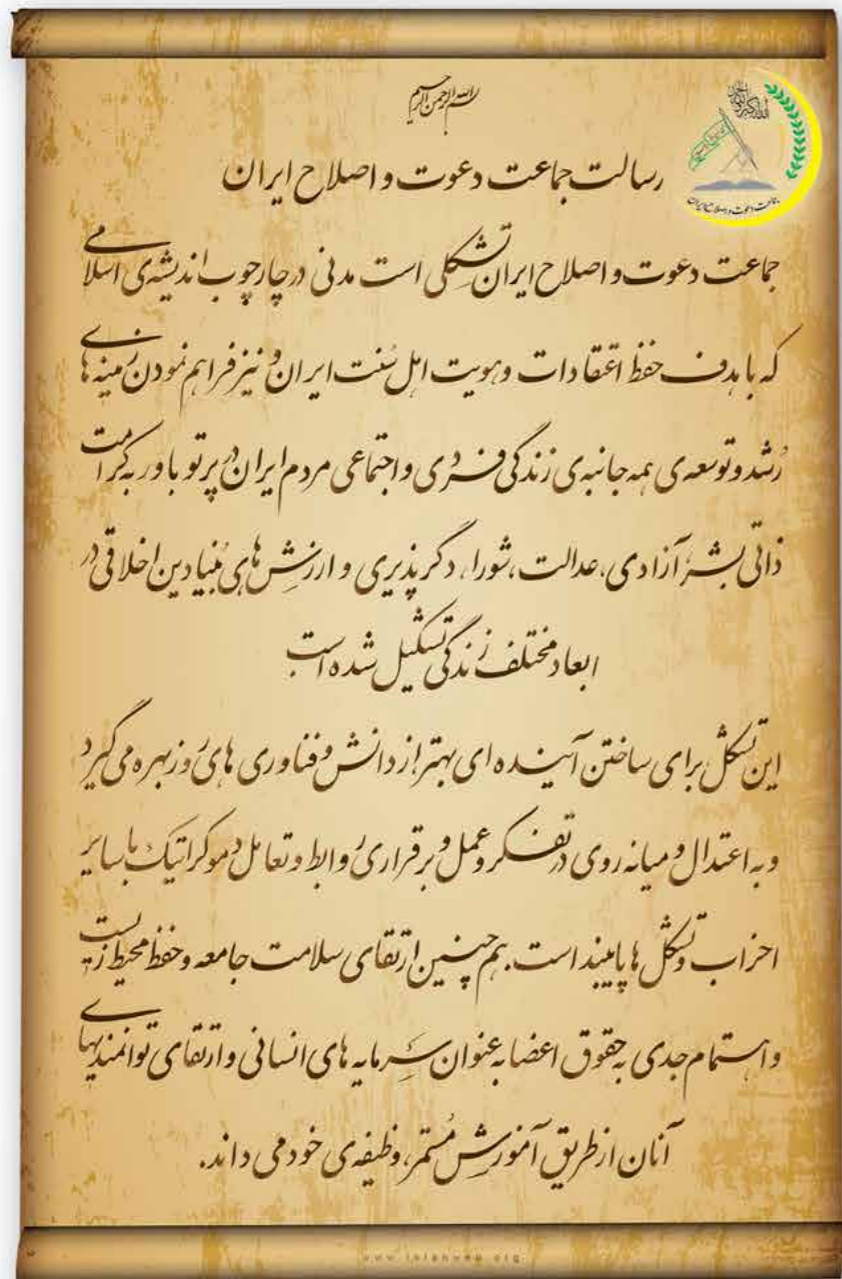 بسم الله الرحمن الرحیم
الله اکبر
جماعت دعوت و اصلاح ایران
رسالت جماعت دعوت و اصلاح ایران
جماعت دعوت و اصلاح ایران تشکلی است مدنی در چارچوب اندیشه‌ی اسلامی
که با هدف حفظ اعتقادات و هویت اهل سُنت ایران و نیز فراهم نمودن زمینه‌های
رُشد و توسعه‌ی همه جانبه‌ی زندگی فردی و اجتماعی مردم ایران در پرتو باور به کرامت
ذاتی بشر، آزادی، عدالت، شورا، دگرپذیری و ارزش‌های بُنیادین اخلاقی در
ابعاد مختلف زندگی تشکیل شده است
این تشکّل برای ساختن آینده‌ای بهتر از دانش و فناوری‌های روز بهره می‌گیرد
و به اعتدال و میانه‌روی در تفکر و عمل و برقراری روابط و تعامل دموکراتیک با سایر
احزاب و تشکّل‌ها پایبند است. هم چنین ارتقای سلامت جامعه و حفظ محیط زیست
و اهتمام جدی به حقوق اعضا به عنوان سرمایه‌های انسانی و ارتقای توانمندیهای
آنان از طریق آموزش مُستمر، وظیفه‌ی خود می‌داند.
www.islahweb.org